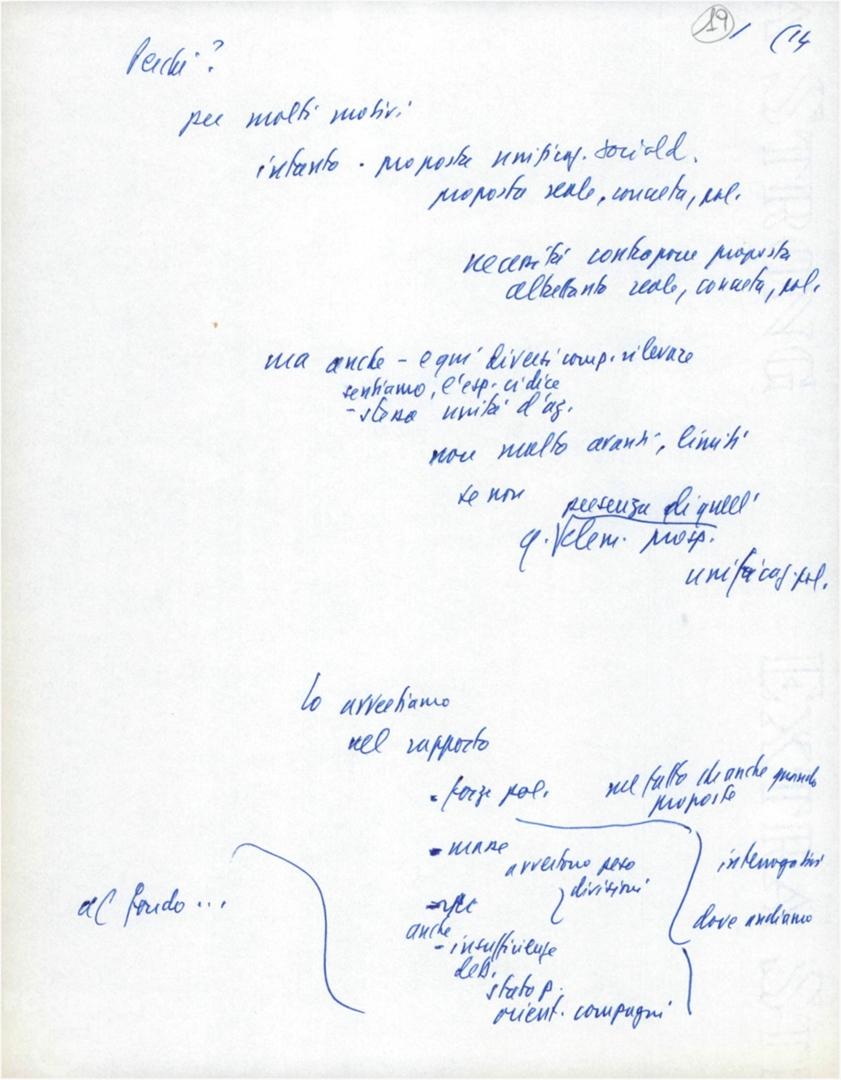 19 / (14
Perché?
per molti motivi
intanto - proposta unificaz. sociald.
proposta reale, concreta, pol.
necessità contrapporre proposta
altrettanto reale, concreta, pol.
ma anche - e qui diversi comp. rilevare
sentiamo, l'esp. ci dice
- stessa unità d'az.
non molto avanti, limiti
se non presenza di quell'
q. elem. prosp.
unificaz. pol.
lo avvertiamo
nel rapporto
- forze pol.
nel fatto che anche quando
proposte
- masse
avvertono peso
divisioni
interrogativi
dove andiamo
al fondo ...
anche
- insufficienze
deb.
stato p.
orient. compagni